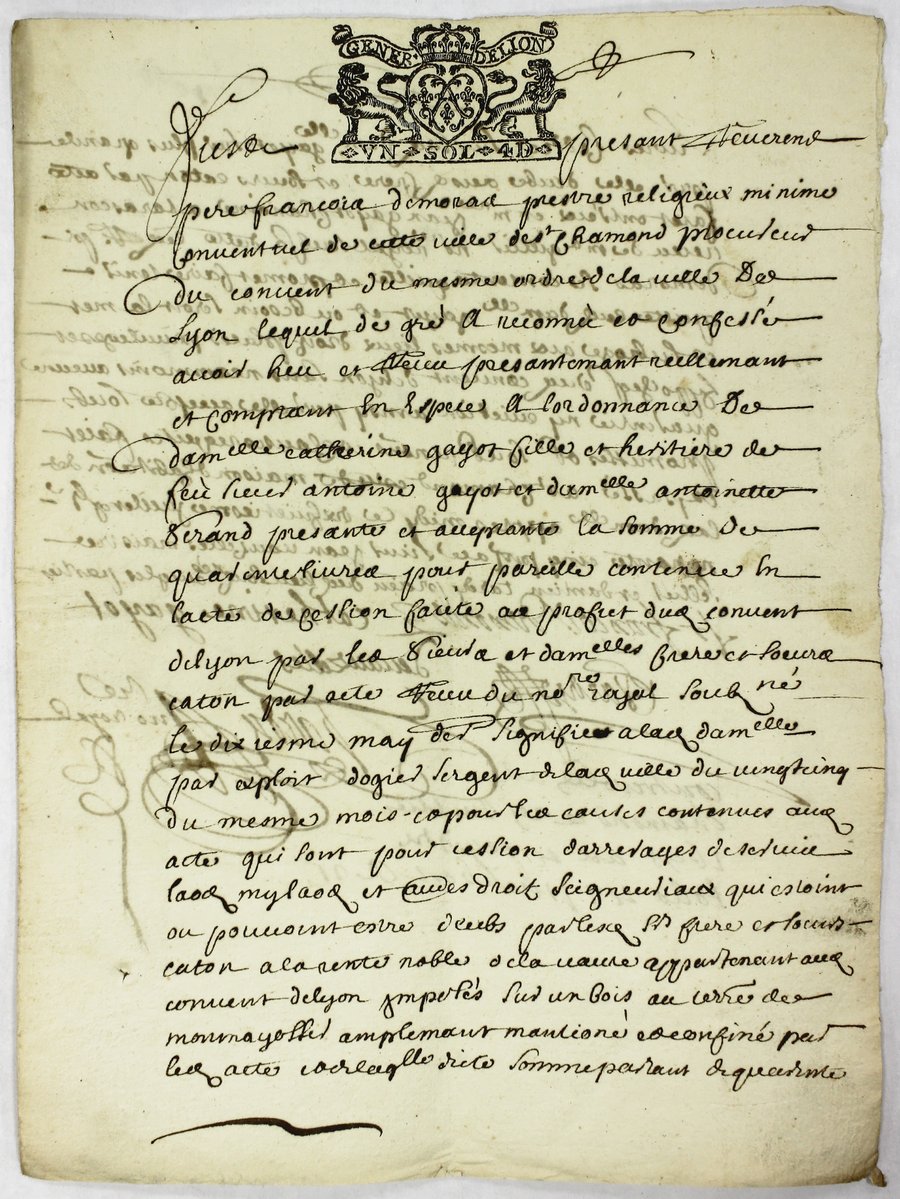 GENER· DELION
VN · SOL · 4D
presant Reverend
pere francois demoras prestre religieux minime
conventuel de cette ville de st Chamond procureur
du convent du mesme ordre de la ville De
Lyon lequel de gré A reconneu et confessé
avoir heu et Receu presantemant reellemant
et comptant En Espece A lordonnance De
damelle catherine gayot fille et heritiere de
feu sieur antoine gayot et damelle antoinette
presante et acceptante la somme De
quarente livres pour pareille contenue En
lacte de cession faite au profict dud convent
de lyon par les sieurs et damelles frere et soeurs
caton par acte Receu du nore royal soubz né
le dixiesme may der signifié a lad damelle
par exploit dogier sergent de lad ville du vingtcinq
du mesme mois et pour les causes contenues aud
acte qui sont pour cession darrerages de servis
laods mylaods et autres droit seigneuriaux qui estoint
ou pouvoint estre deubs par lesd srs frere et soeurs
caton a la rente noble de la vaure appartenant aud
convent de lyon imposés sur un bois au terre de
amplemant mantioné et confiné par
led acte et de laqlle dicte somme parant de quarente